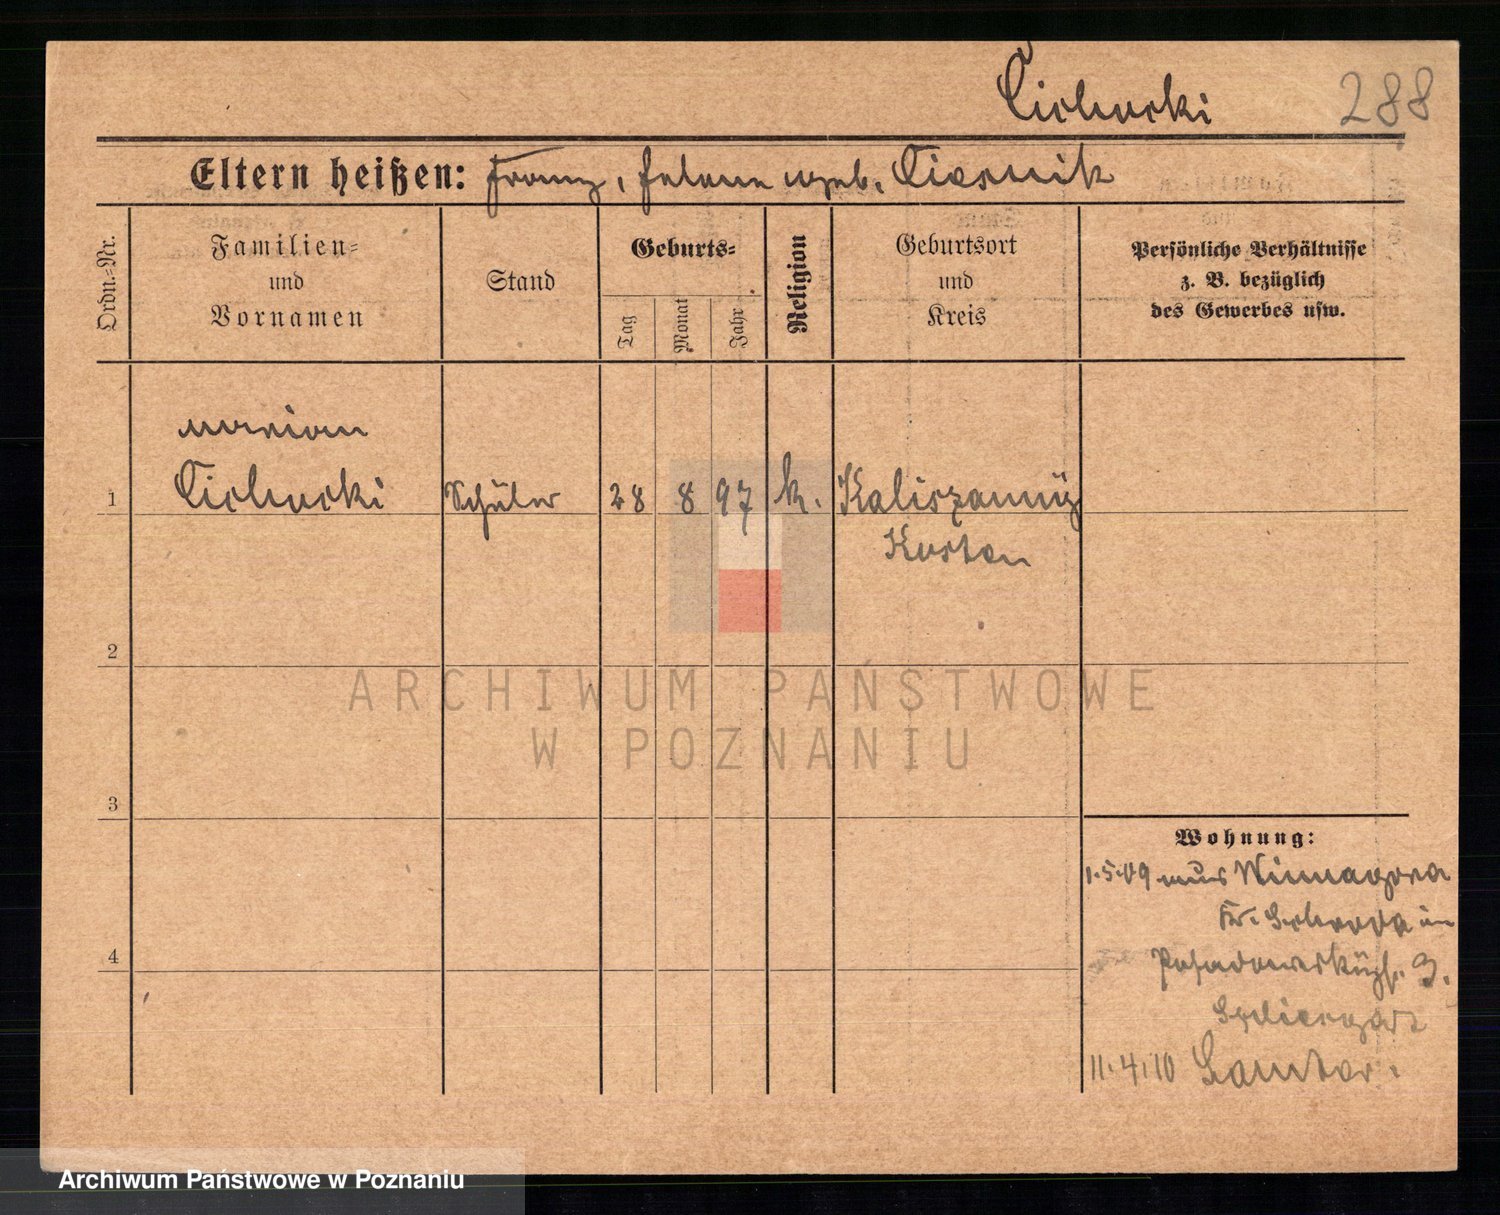 Cichocki
288
Eltern heißen: Franz, Helene geb. Ciesnik
Ordn.=Nr.
Familien=
und
Vornamen
Stand
Geburts=
Tag
Monat
Jahr
Religion
Geburtsort
und
Kreis
Persönliche Verhältnisse
z. B. bezüglich
des Gewerbes usw.
Marian
1 Cichocki Schüler 28 8 97 k.
Kosten
2
3
4
Wohnung:
1.5.09 aus Winnagora
Kr. Schroda in
3.
11.4.10 Samter.
ARCHIWUM PAŃSTWOWE
W POZNANIU
Archiwum Państwowe w Poznaniu